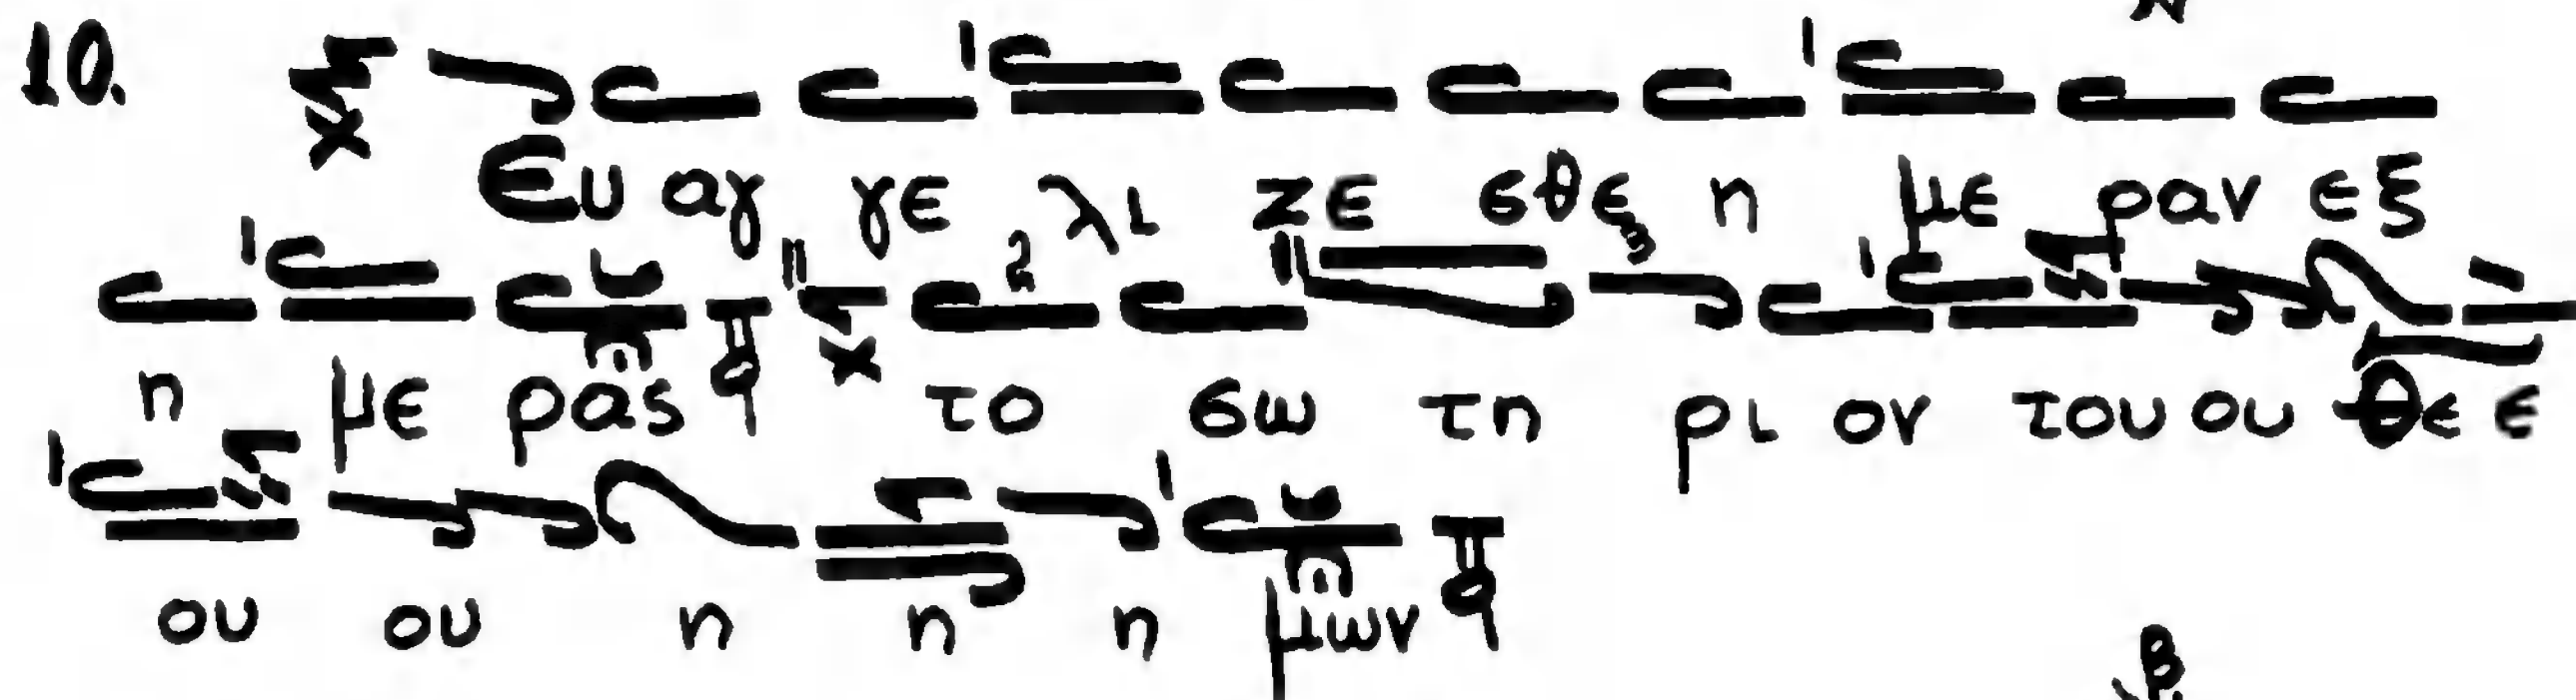 10.
Ευ αγ γε λι ζε σθε η με ραν εξ
η με ρας το σω τη ρι ον του ου θε ε
ου ου η η η μων
β